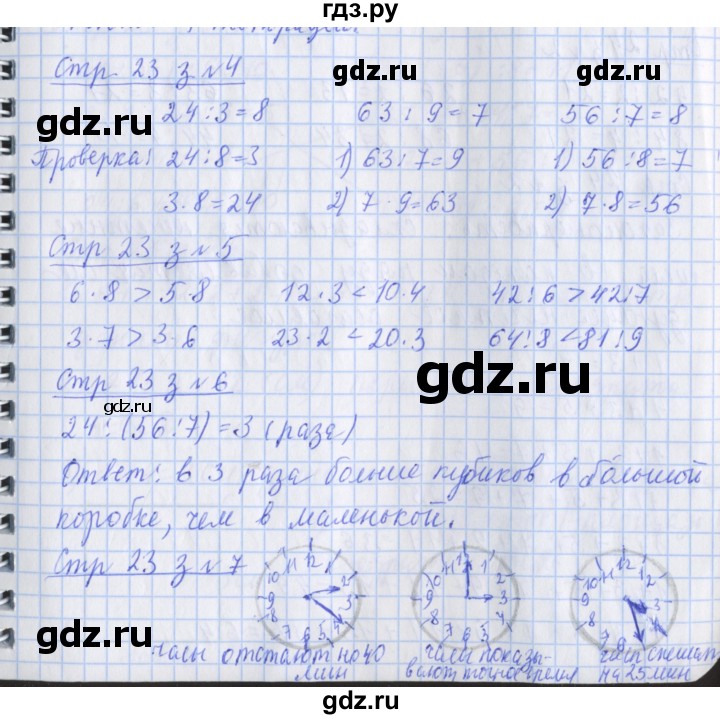 гдз.ру
Стр 23 з №4
gdz.ru gdz.ru
24:3=8 63:9=7 56:7=8
gdz.ru
Проверка: 24:8=3 1) 63:7=9 1) 56:8=7
3·8=24 2) 7·9=63 2) 7·8=56
gdz.ru gdz.ru
Стр 23 з №5
6·8>5·8 12·3<10·4 42:6>42:7
gdz.ru
3·7>3·6 23·2<20·3 64:8<81:9
Стр 23 з №6
gdz.ru gdz.ru
24:(56:7)=3 (раза)
Ответ: в 3 раза больше кубиков в большой
gdz.ru
коробке, чем в маленькой.
Стр 23 з №7
gdz.ru
12 1 2 3 4 5 6 7 8 9 10 11
часы отстают на 40 мин
часы показывают точное время
часы спешат на 25 мин
gdz.ru gdz.ru